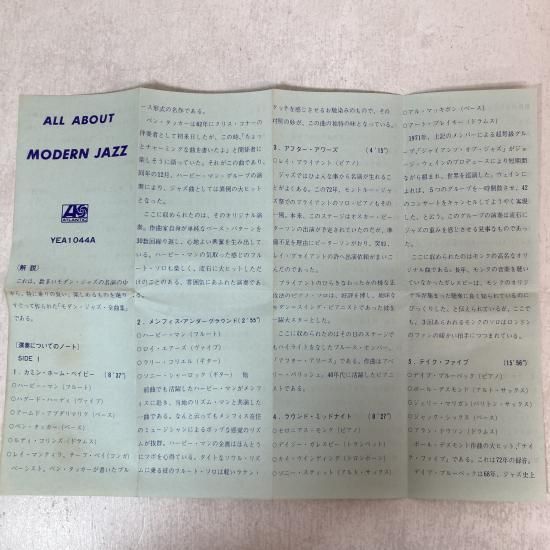 ALL ABOUT
MODERN JAZZ
ATLANTIC
YEA1044A
〈解 説〉
これは、数多いモダン・ジャズの名演の中
から、特に乗りの良い、楽しめるものを選り
すぐって作られた「モダン・ジャズ・全曲集」
である。
〔演奏についてのノート〕
SIDE 1
1. カミン・ホーム・ベイビー (8'37")
○ハービー・マン (フルート)
○ハグード・ハーディ (ヴァイブ)
○アームド・アブダリマリク (ベース)
○ベン・タッカー (ベース)
○ルディ・コリンズ (ドラムス)
○レイ・マンティラ、チーフ・ベイ (コンガ)
ベーシスト、ベン・タッカーが書いたブル
ース形式の名作である。
ベン・タッカーは62年にクリス・コナーの
伴奏者として初来日したが、この時、「ちょっ
とチャーミングな曲を書いたよ」と関係者に
楽しそうに語っていた。それがこの曲であり、
同年の12月、ハービー・マン・グループの演
奏により、ジャズ曲としては異例の大ヒット
となった。
ここに収められたのは、そのオリジナル演
奏。作曲家自身が単純なベース・パターンを
30数回繰り返し、心地よい興奮を生み出して
いる。ハービー・マンの気取った感じのフル
ート・ソロも楽しく、流石に大ヒットしただ
けのことのある、雰囲気にあふれた演奏であ
る。
2. メンフィス・アンダーグラウンド (2'55")
○ハービー・マン (フルート)
○ロイ・エアーズ (ヴァイブ)
○ラリー・コリエル (ギター)
○ソニー・シャーロック (ギター) 他
前曲でも活躍したハービー・マンがメンフ
ィスに赴き、当地のリズム・マンと共演した
一曲である。なんと云ってもメンフィス在住
のミュージシャンによるポップな感覚のリズ
ムが抜群。ハービー・マンの企画はほんとう
にツボを心得ている。タイトなソウル・リズ
ムに乗る彼のフルート・ソロは軽いラテン・
タッチを感じさせるお馴染みのもので、その
対照の妙が、この曲の独特の味となっている。
3. アフター・アワーズ (4'15")
○レイ・ブライアント (ピアノ)
ジャズではひょんな事から名演が生れるこ
とがよくある。この72年、モントルー・ジャ
ズ祭でのブライアントのソロ・ピアノもその
一例。本来、このステージはオスカー・ピー
ターソンの出演が予定されていたのだが、準
備不足を理由にピーターソンがおり、突如、
レイ・ブライアントの許へ出演依頼がまいこ
んだのである。
ブライアントのひらきなおったかの様な正
攻法のピアノ・ソロは、好評を博し、地味な
スイング・ピアニストであった彼は
一躍大スターとした。
ここに収められたのはその日のステージで
もハイライトをなしたブルース・ナンバー、
「アフター・アワーズ」である。作曲はアベ
リー・パリッシュ。40年代に活躍したピアニ
ストである。
4. ラウンド・ミッドナイト (8'27")
○セロニアス・モンク (ピアノ)
○デイジー・ガレスピー (トランペット)
○カイ・ウインディング (トロンボーン)
○ソニー・スティット (アルト・サックス)
○アル・マッキボン (ベース)
○アート・ブレイキー (ドラムス)
1971年、上記のメンバーによる超弩級グル
ープ、「ジャイアンツ・オブ・ジャズ」がジョ
ージ・ウェインのプロデュースにより短期間
ながら組まれ、世界を巡演した。ウェインに
よれば、5つのグループを一時解散させ、42
のコンサートをキャンセルしてようやく実現
した、と云う。このグループの演奏は流石に
ジャズの重みを感じさせる見事なものであっ
た。
ここに収められたのはモンクの高名なオリ
ジナル曲である。長年、モンクの音楽を聴い
ていなかったガレスピーは、モンクのオリジ
ナルが深まった聴衆に良く知られているのに
びっくりした、と伝えられているが、ここで
も、3回あらわれるモンクのソロはロンドン
のファンの暖かい拍手につつまれている。
5. テイク・ファイブ (15'56")
○デイブ・ブルーベック (ピアノ)
○ポール・デスモンド (アルト・サックス)
○ジェリー・マリガン (バリトン・サックス)
○ジャック・シックス (ベース)
○アラン・ドウソン (ドラムス)
ポール・デスモンド作曲の大ヒット、「テイ
ク・ファイブ」である。これは72年の録音。
デイブ・ブルーベックは68年、ジャズ史上